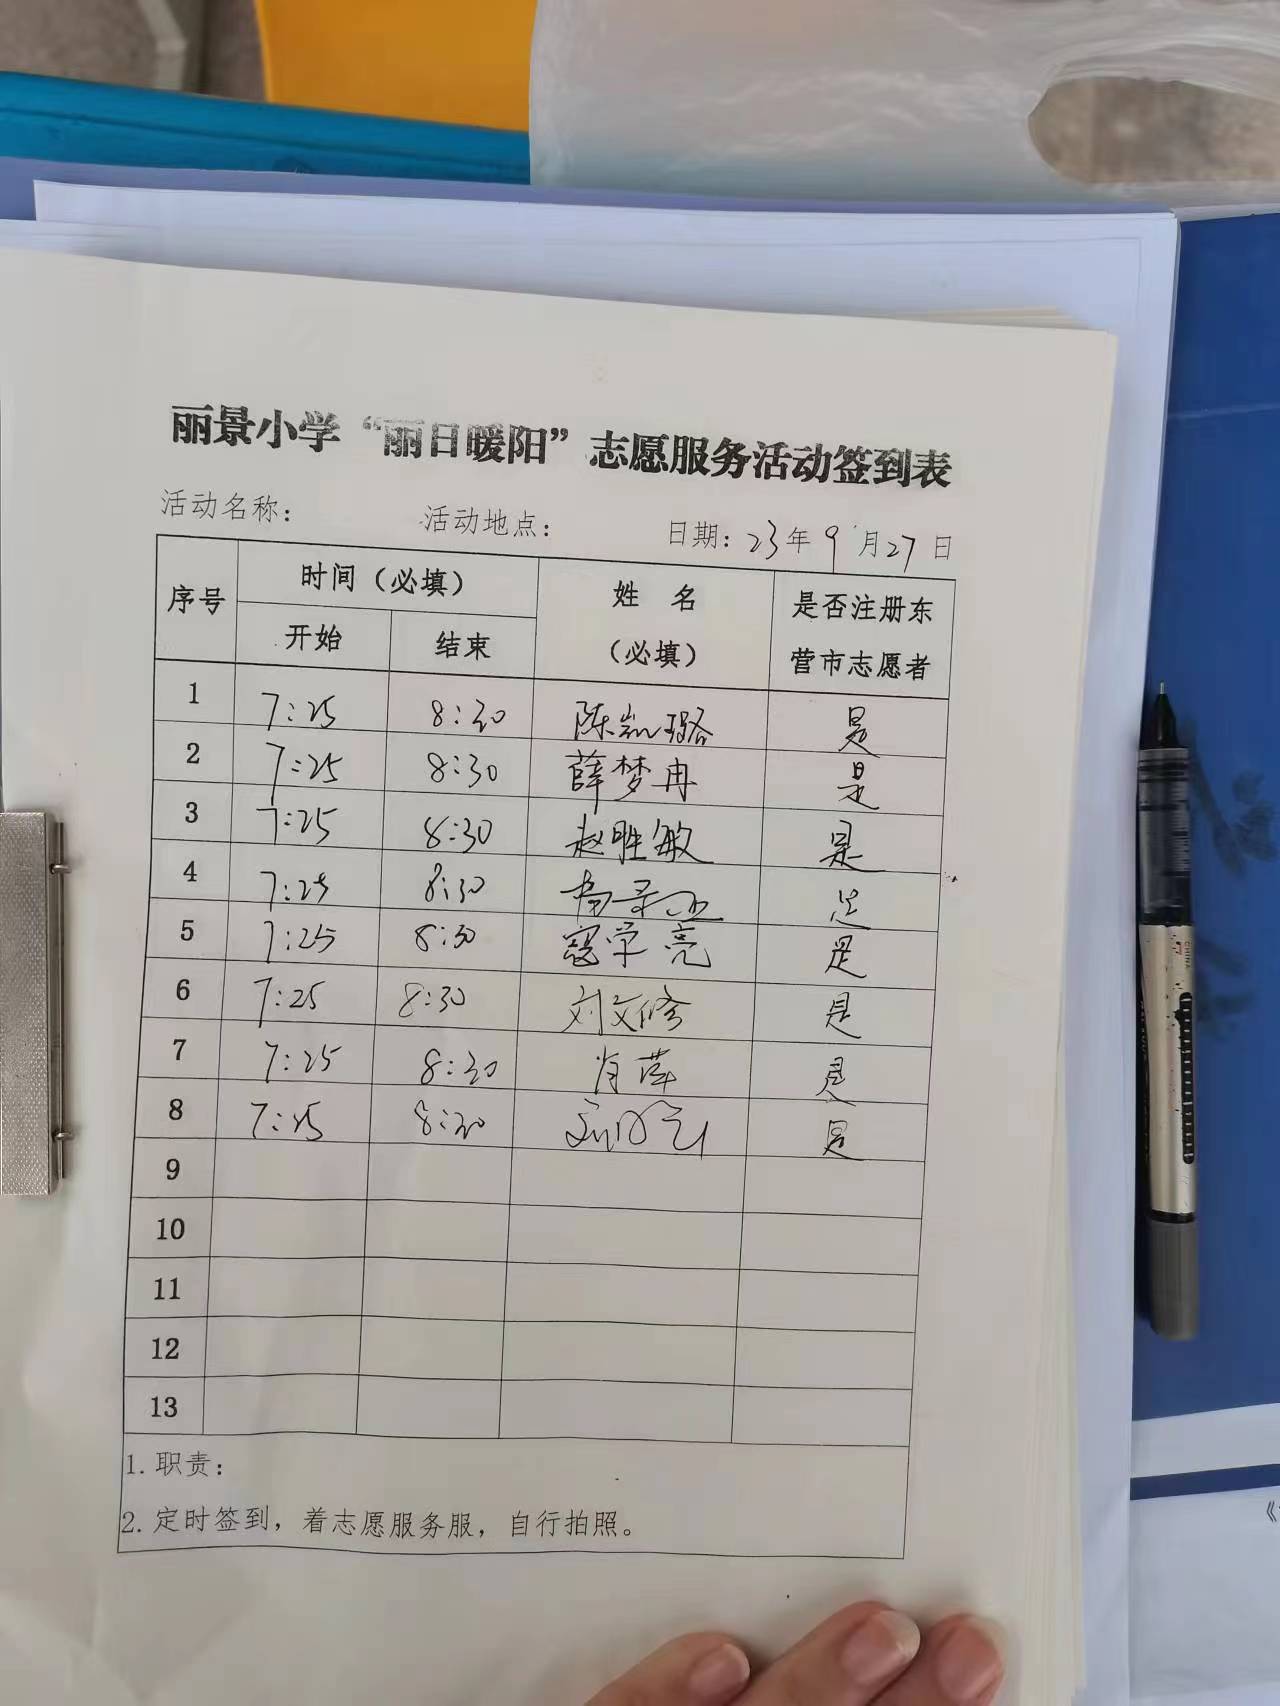 丽景小学“丽日暖阳”志愿服务活动签到表
活动名称： 活动地点： 日期：23年9月27日
序号 时间（必填） 姓 名（必填） 是否注册东营市志愿者
开始 结束
1 7:25 8:30 陈凯璐 是
2 7:25 8:30 薛梦冉 是
3 7:25 8:30 赵胜敏 是
4 7:25 8:30 是
5 7:25 8:30 寇学亮 是
6 7:25 8:30 刘文修 是
7 7:25 8:30 肖萍 是
8 7:25 8:30 是
9
10
11
12
13
1. 职责：
2. 定时签到，着志愿服务服，自行拍照。
CHINA